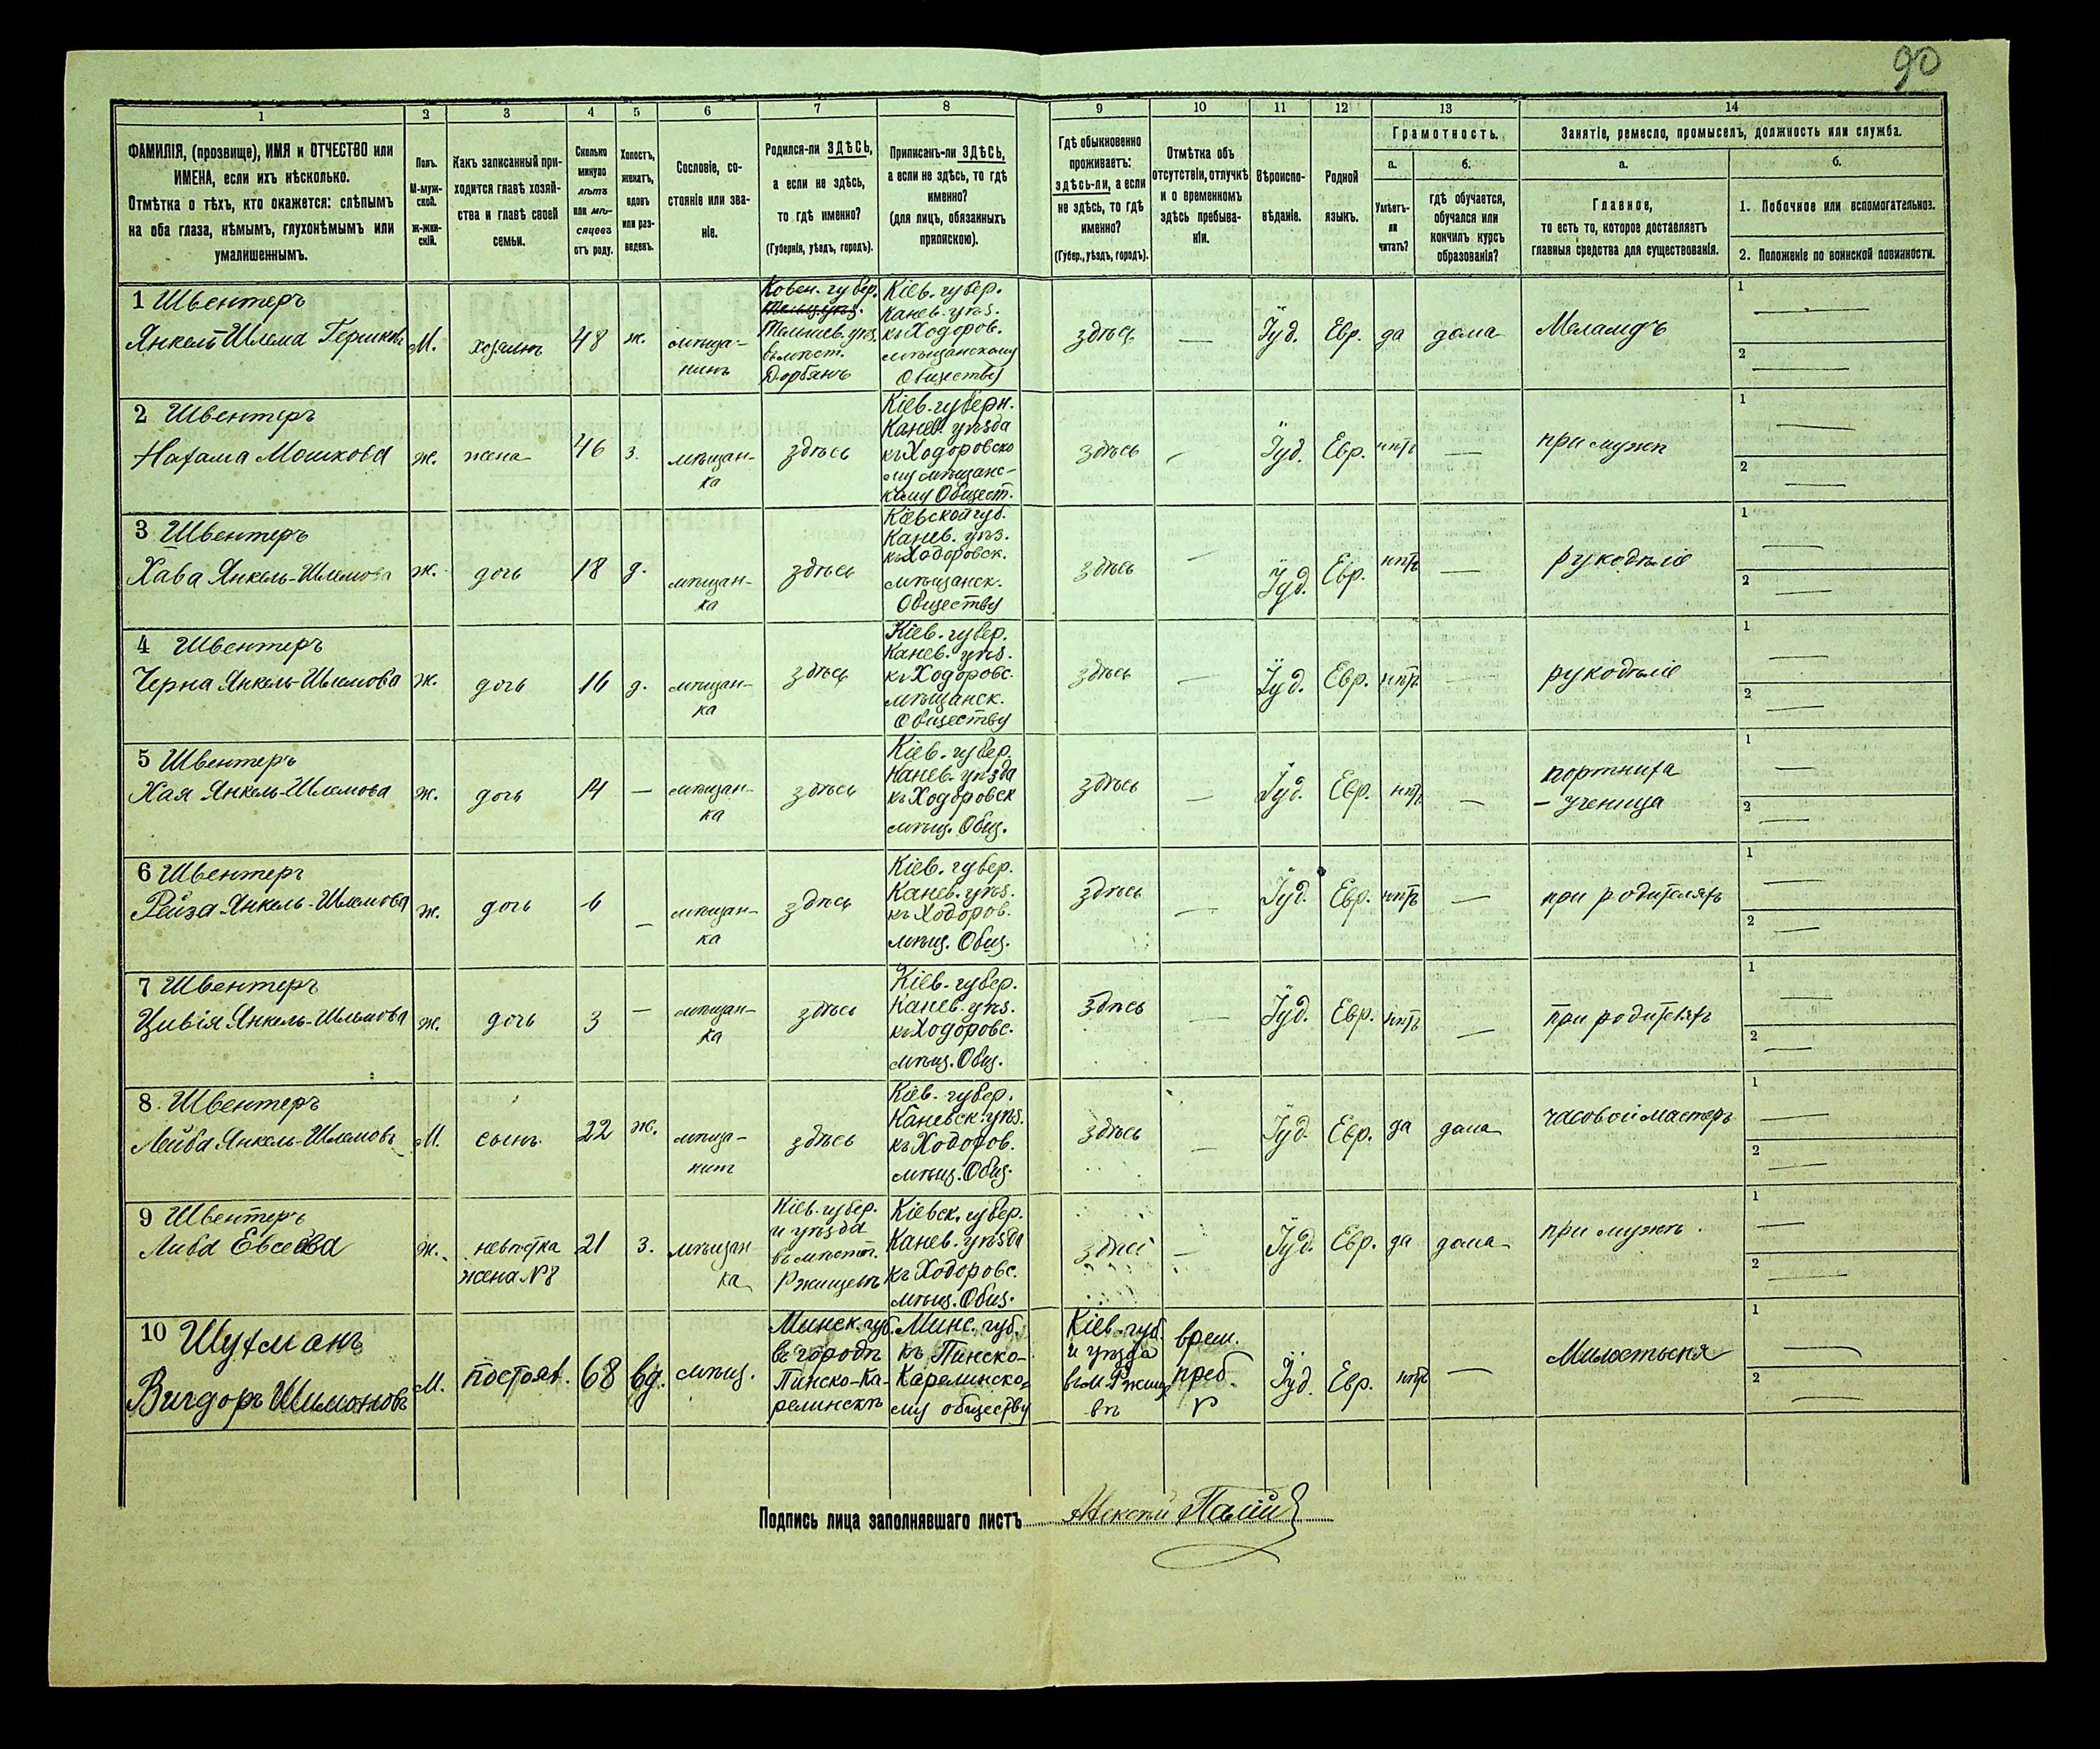 90
1 2 3 4 5 6 7 8 9 10 11 12 13 14
ФАМИЛІЯ, (прозвище), ИМЯ и ОТЧЕСТВО или
ИМЕНА, если ихъ нѣсколько.
Отмѣтка о тѣхъ, кто окажется: слѣпымъ
на оба глаза, нѣмымъ, глухонѣмымъ или
умалишеннымъ.
Полъ.
М-муж-
ской.
ж-жен-
скій.
Какъ записанный при-
ходится главѣ хозяй-
ства и главѣ своей
семьи.
Сколько
минуло
лѣтъ
или мѣ-
сяцевъ
отъ роду.
Холостъ,
женатъ,
вдовъ
или раз-
веденъ.
Сословіе, со-
стояніе или зва-
ніе.
Родился-ли ЗДѢСЬ,
а если не здѣсь,
то гдѣ именно?
(Губернія, уѣздъ, городъ).
Приписанъ-ли ЗДѢСЬ,
а если не здѣсь, то гдѣ
именно?
(для лицъ, обязанныхъ
припискою).
Гдѣ обыкновенно
проживаетъ:
здѣсь-ли, а если
не здѣсь, то гдѣ
именно?
(Губер., уѣздъ, городъ).
Отмѣтка объ
отсутствіи, отлучкѣ
и о временномъ
здѣсь пребыва-
ніи.
Вѣроиспо-
вѣданіе.
Родной
языкъ.
Грамотность.
а.
Умѣетъ-
ли
читать?
б.
гдѣ обучается,
обучался или
кончилъ курсъ
образованія?
Занятіе, ремесло, промыселъ, должность или служба.
а.
Главное,
то есть то, которое доставляетъ
главныя средства для существованія.
б.
1. Побочное или вспомогательное.
2. Положеніе по воинской повинности.
1 Швентеръ
Янкель Шлема Гершковъ
М.
хозяинъ
48
ж.
мѣща-
нинъ
Ковен. губер.
Тельшев. уѣз.
въ мѣст.
Дорбянъ
Кіев. губер.
Канев. уѣз.
къ Ходоров.
мѣщанскому
Обществу
здѣсь
—
Іуд.
Евр.
да
дома
Меламдъ
1 —
2 —
2 Швентеръ
Нахама Мошкова
ж.
жена
46
з.
мѣщан-
ка
здѣсь
Кіев. губерн.
Канев. уѣзда
къ Ходоровско
му мѣщанс-
кому Общест.
здѣсь
—
Іуд.
Евр.
нѣтъ
—
при мужѣ
1 —
2 —
3 Швентеръ
Хава Янкель-Шлемова
ж.
дочь
18
д.
мѣщан-
ка
здѣсь
Кіевской губ.
Канев. уѣз.
къ Ходоровск.
мѣщанск.
Обществу
здѣсь
—
Іуд.
Евр.
нѣтъ
—
рукодѣліе
1 —
2 —
4 Швентеръ
Черна Янкель-Шлемова
ж.
дочь
16
д.
мѣщан-
ка
здѣсь
Кіев. губер.
Канев. уѣз.
къ Ходоровс.
мѣщанск.
Обществу
здѣсь
—
Іуд.
Евр.
нѣтъ
—
рукодѣліе
1 —
2 —
5 Швентеръ
Хая Янкель-Шлемова
ж.
дочь
14
—
мѣщан-
ка
здѣсь
Кіев. губер.
Канев. уѣзда
къ Ходоровск
мѣщ. Общ.
здѣсь
—
Іуд.
Евр.
нѣтъ
—
портниха
- ученица
1 —
2 —
6 Швентеръ
Рейза Янкель-Шлемова
ж.
дочь
6
—
мѣщан-
ка
здѣсь
Кіев. губер.
Канев. уѣз.
къ Ходоров.
мѣщ. Общ.
здѣсь
—
Іуд.
Евр.
нѣтъ
—
при родителяхъ
1 —
2 —
7 Швентеръ
Цивія Янкель-Шлемова
ж.
дочь
3
—
мѣщан-
ка
здѣсь
Кіев. губер.
Канев. уѣз.
къ Ходоровс.
мѣщ. Общ.
здѣсь
—
Іуд.
Евр.
нѣтъ
—
при родителяхъ
1 —
2 —
8. Швентеръ
Лейба Янкель-Шлемовъ
М.
сынъ
22
ж.
мѣща-
нинъ
здѣсь
Кіев. губер.
Каневск. уѣз.
къ Ходоров.
мѣщ. Общ.
здѣсь
—
Іуд.
Евр.
да
дома
часовой мастеръ
1 —
2 —
9 Швентеръ
Либа Евсеева
ж.
невѣстка
жена №8
21
з.
мѣщан
ка
Кіев. губер.
и уѣзда
въ мѣст.
Ржищевѣ
Кіевск. губер.
Канев. уѣзда
къ Ходоровс.
мѣщ. Общ.
здѣсь
—
Іуд.
Евр.
да
дома
при мужѣ.
1 —
2 —
10 Шухманъ
Вигдоръ Шимоновъ
М.
постоял.
68
вд.
мѣщ.
Минск. губ.
въ городѣ
Пинско-Ка-
релинскѣ
Минс. губ.
къ Пинско-
Карелинско-
му обществу
Кіев. губ.
и уѣзда
въ м. Ржище
вѣ
врем.
преб.
Іуд.
Евр.
нѣтъ
—
Милостыня
1 —
2 —
Подпись лица заполнявшаго листъ